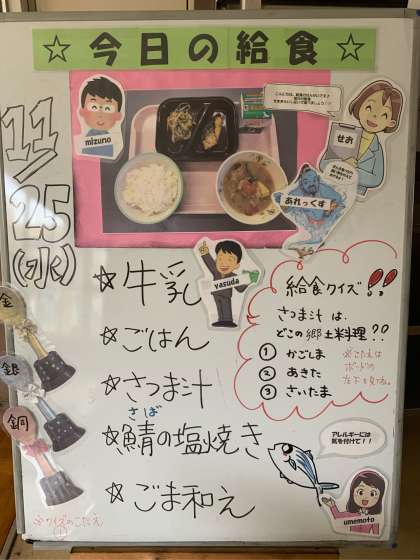 ☆今日の給食☆
11/25(水)
mizuno
せお
あれっくす
yasuda
☆牛乳
☆ごはん
☆さつま汁
さば
☆鯖の塩焼き
☆ごま和え
給食クイズ!!
さつま汁は、
どこの郷土料理??
① かごしま
② あきた
③ さいたま
※こたえは
ボードの
左下を見てね。
金
銀
銅
アレルギーには
気を付けて!!
umemoto
※クイズのこたえ
①